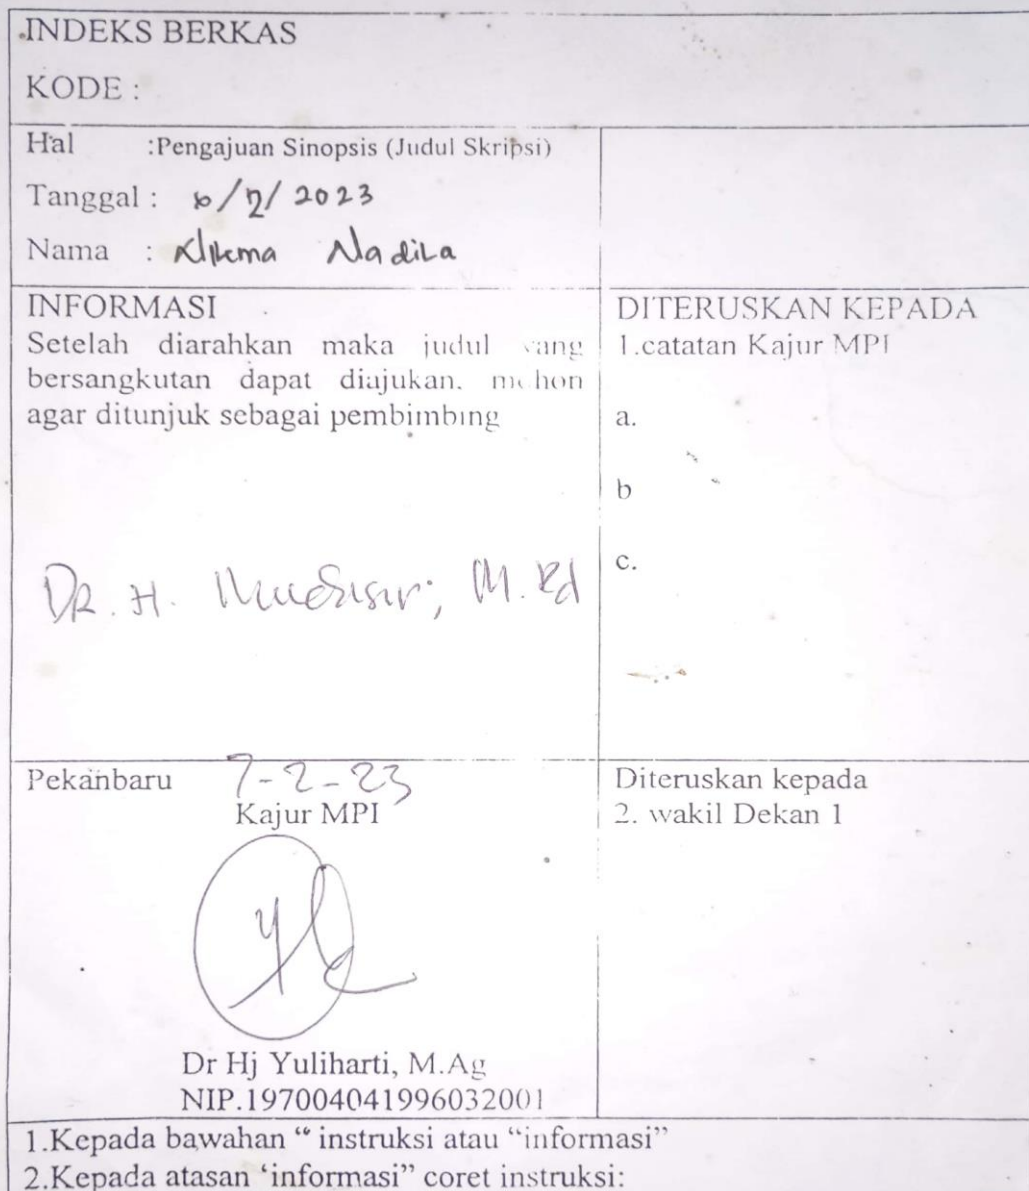 INDEKS BERKAS
KODE :
Hal :Pengajuan Sinopsis (Judul Skripsi)
Tanggal : 6/2/2023
Nama : Nadila
INFORMASI
Setelah diarahkan maka judul yang
bersangkutan dapat diajukan. mohon
agar ditunjuk sebagai pembimbing
DR. H. M.Ed
DITERUSKAN KEPADA
1.catatan Kajur MPI
a.
b
c.
Pekanbaru 7-2-23
Kajur MPI
Dr Hj Yuliharti, M.Ag
NIP.197004041996032001
Diteruskan kepada
2. wakil Dekan 1
1.Kepada bawahan “ instruksi atau “informasi”
2.Kepada atasan ‘informasi” coret instruksi: